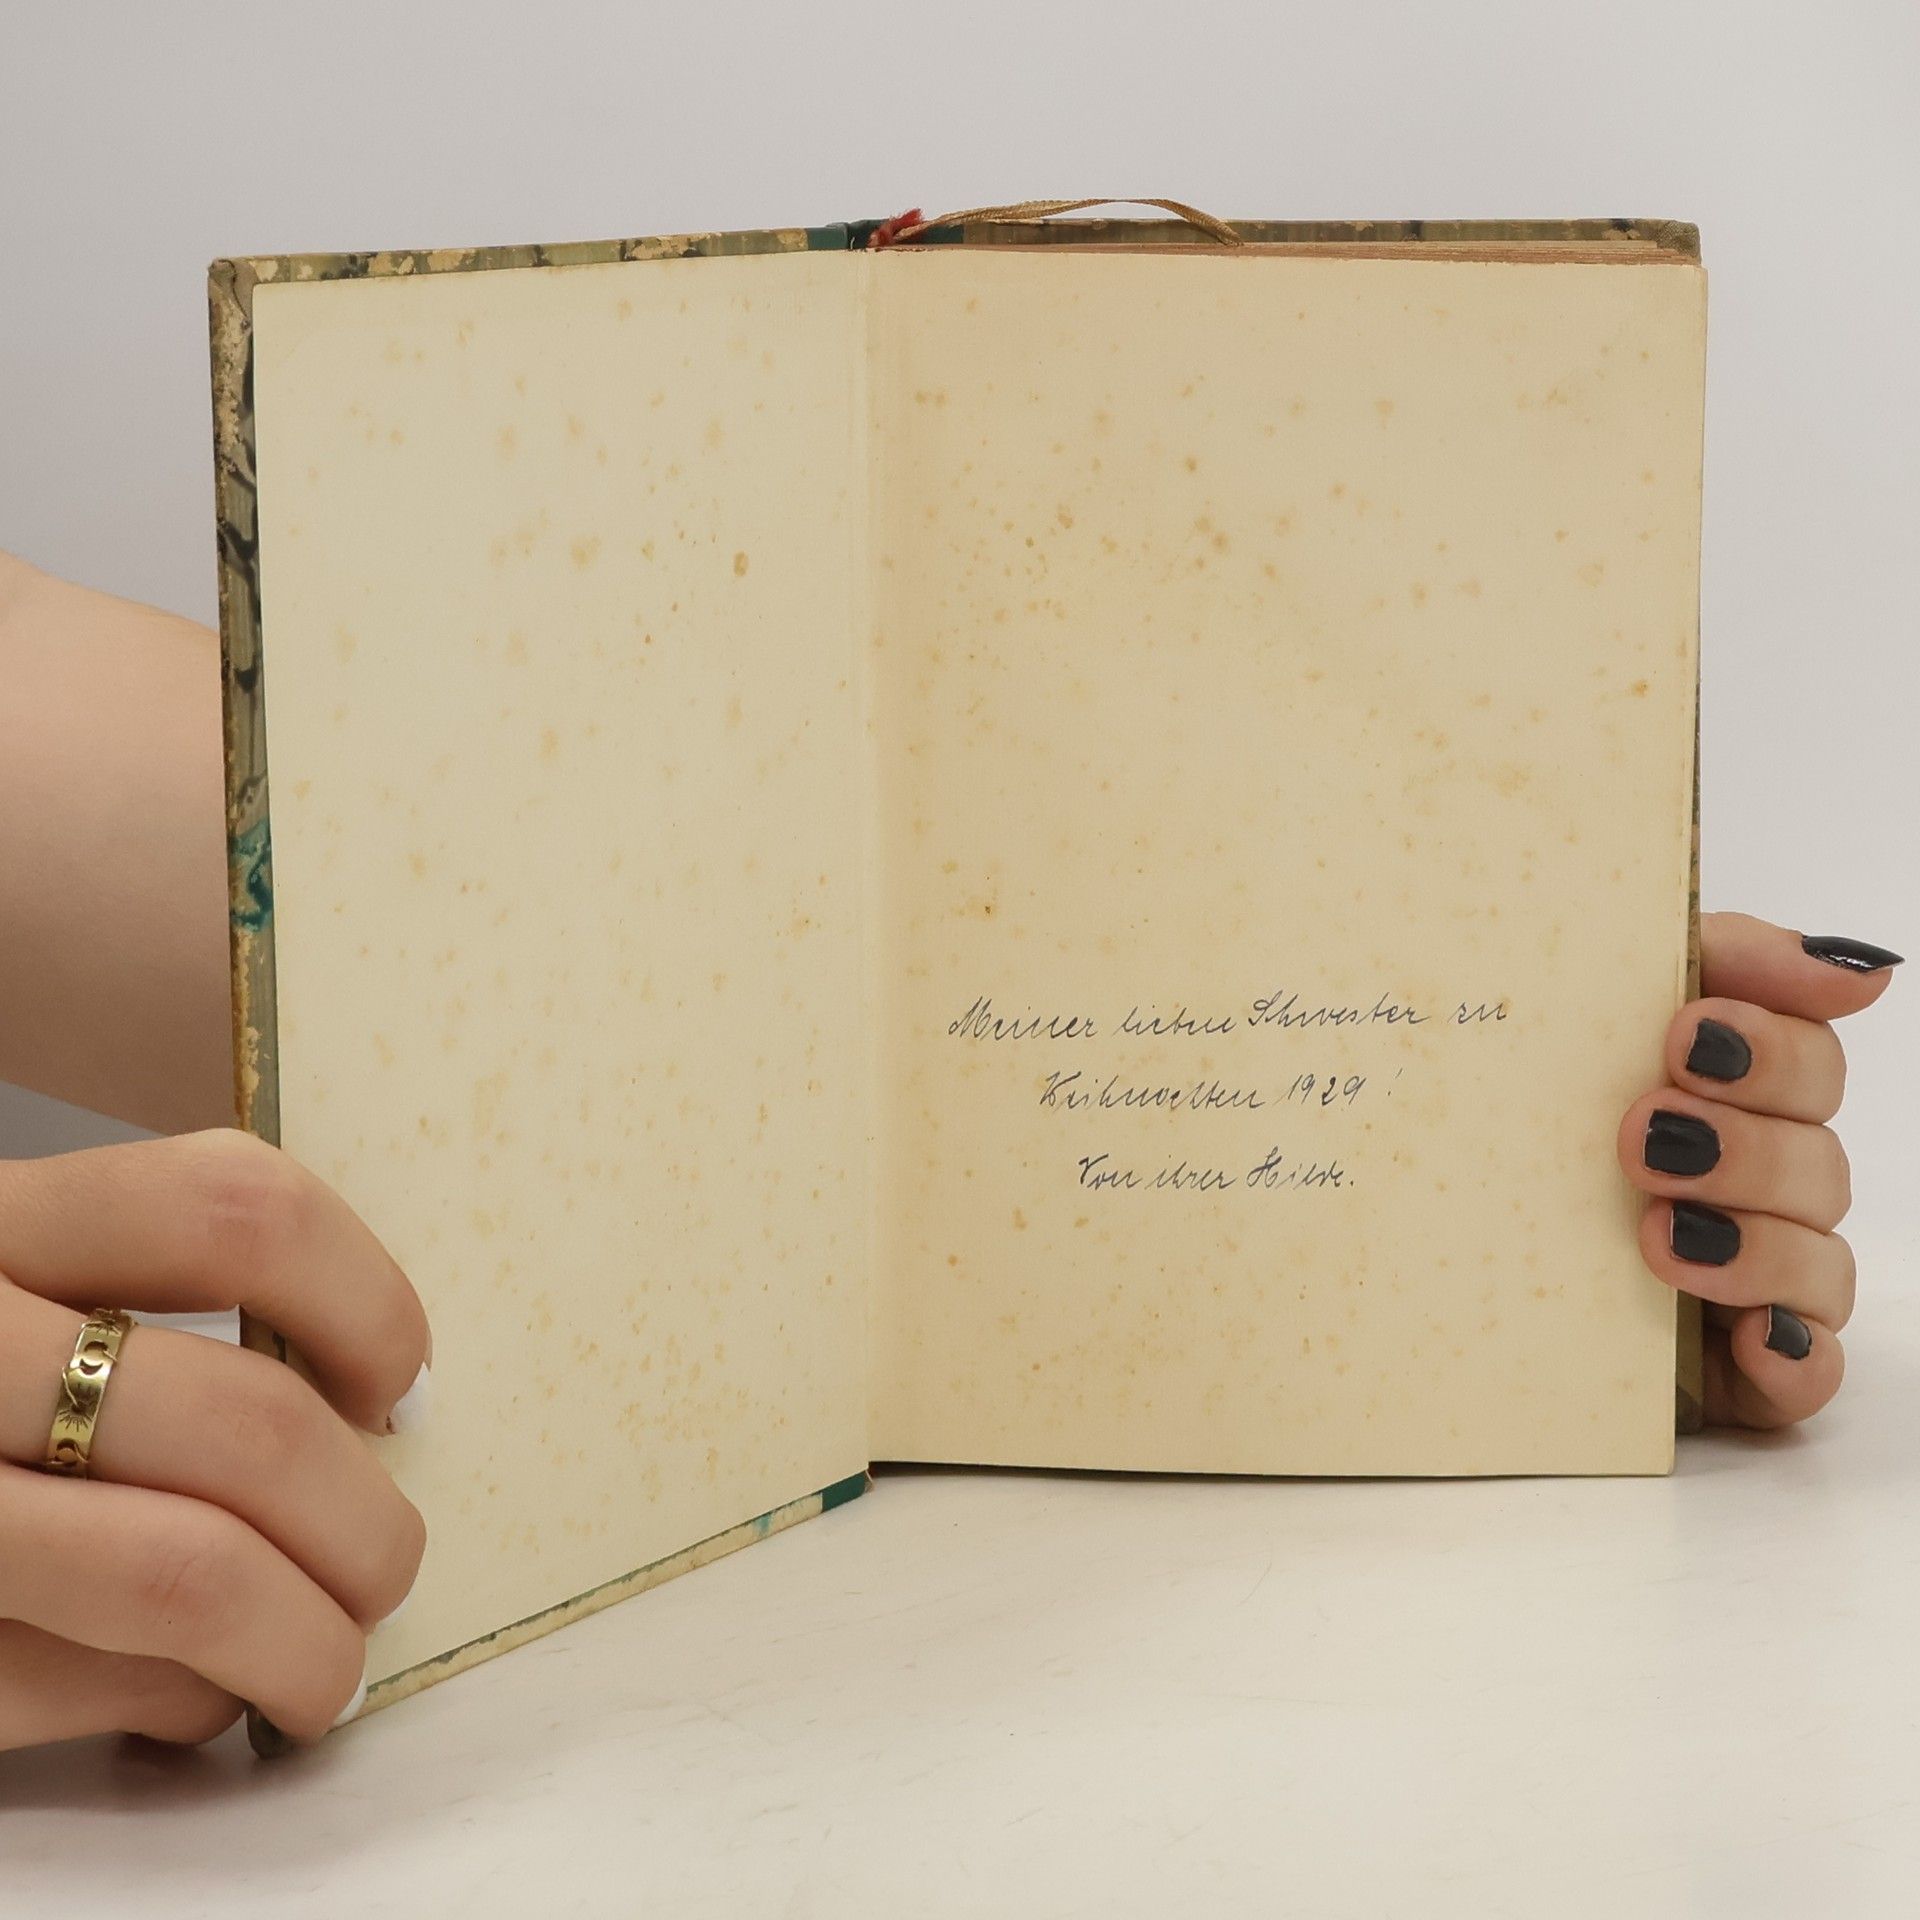 Meiner lieben Schwester zu
Weihnachten 1929!
Von ihrer Hilde.